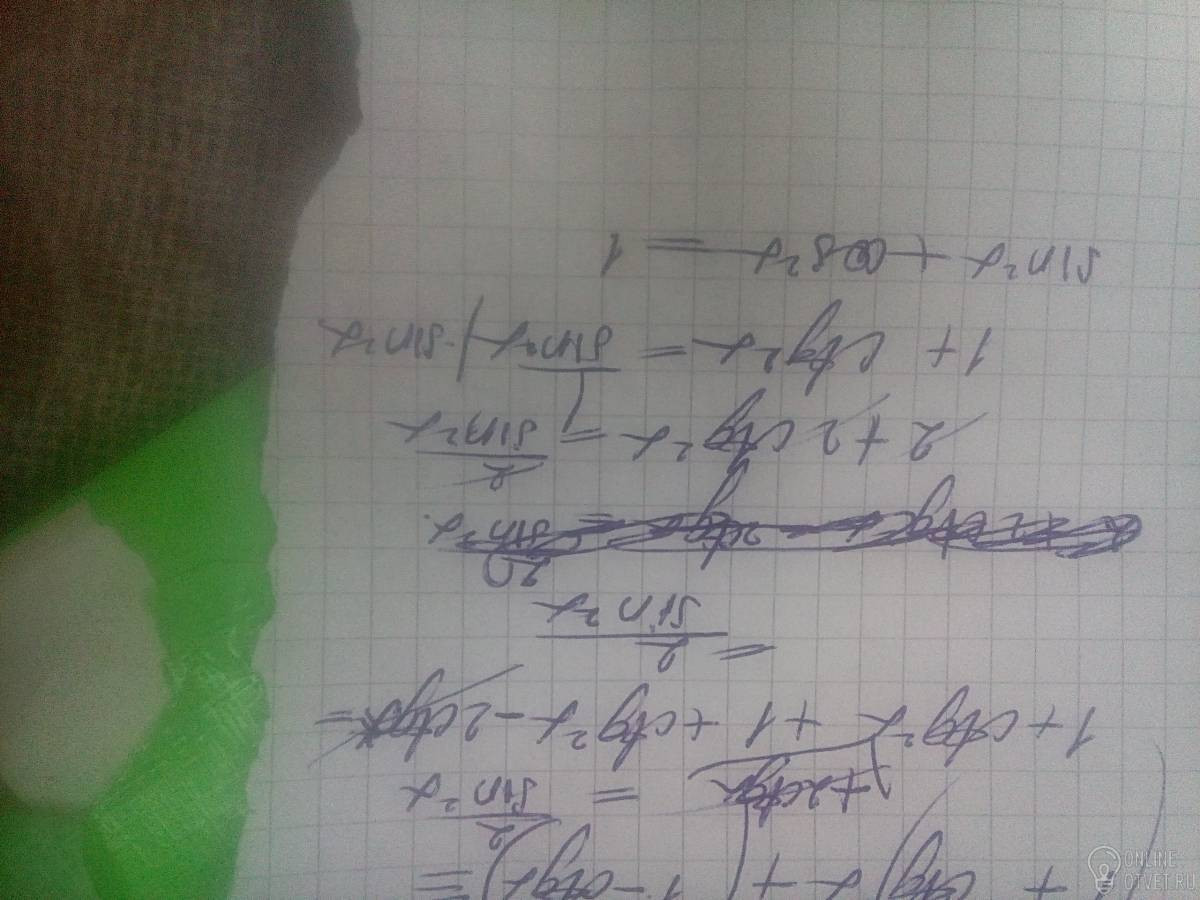 1 + ctgα)² + (1 - ctgα)² =
+2ctgα = 2/sin²α
1 + ctg²α + 1 + ctg²α - 2ctgα =
= 2/sin²α
2 + 2ctg²α = 2/sin²α
1 + ctg²α = 1/sin²α | · sin²α
sin²α + cos²α = 1
ONLINE-
OTVET.RU